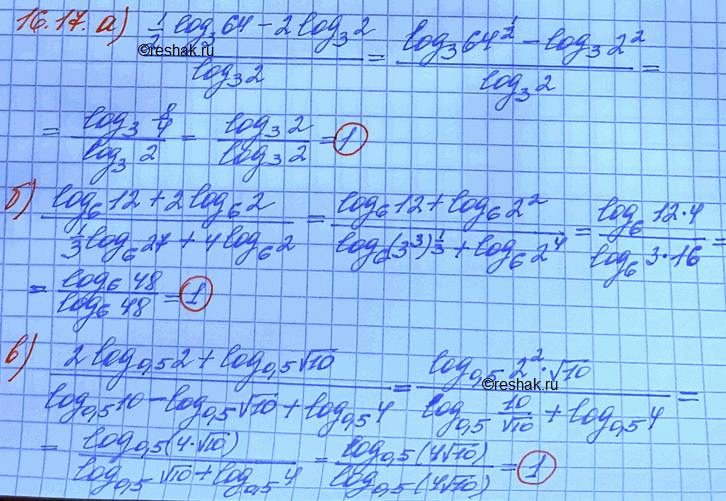 16.17. а) (1/2 log₃64 − 2 log₃2) / log₃2 = (log₃64^(1/2) − log₃2²) / log₃2 =
©reshak.ru
= log₃(8/4) / log₃2 = log₃2 / log₃2 = 1
б) (log₆12 + 2 log₆2) / (1/3 log₆27 + 4 log₆2) = (log₆12 + log₆2²) / (log₆(3³)^(1/3) + log₆2⁴) = log₆12·4 / log₆3·16 =
= log₆48 / log₆48 = 1
в) (2 log₀,₅2 + log₀,₅√10) / (log₀,₅10 − log₀,₅√10 + log₀,₅4) = log₀,₅2²·√10 / (log₀,₅(10/√10) + log₀,₅4) =
©reshak.ru
= log₀,₅(4·√10) / (log₀,₅√10 + log₀,₅4) = log₀,₅(4√10) / log₀,₅(4√10) = 1